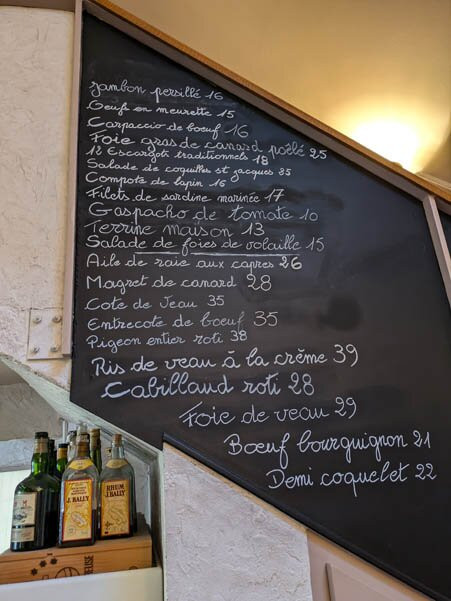 Jambon persillé 16
Oeufs en meurette 15
Carpaccio de boeuf 16
Foie gras de canard poêlé 25
12 Escargots traditionnels 18
Salade de coquilles st jacques 25
Compote de lapin 16
Filets de sardine marinée 17
Gaspacho de tomate 10
Terrine maison 13
Salade de foies de volaille 15
Aile de raie aux capres 26
Magret de canard 28
Cote de Veau 35
Entrecote de boeuf 35
Pigeon entier roti 38
Ris de veau à la crème 39
Cabillaud roti 28
Foie de veau 29
Boeuf bourguignon 21
Demi coquelet 22
J. BALLY
RHUM
J. BALLY